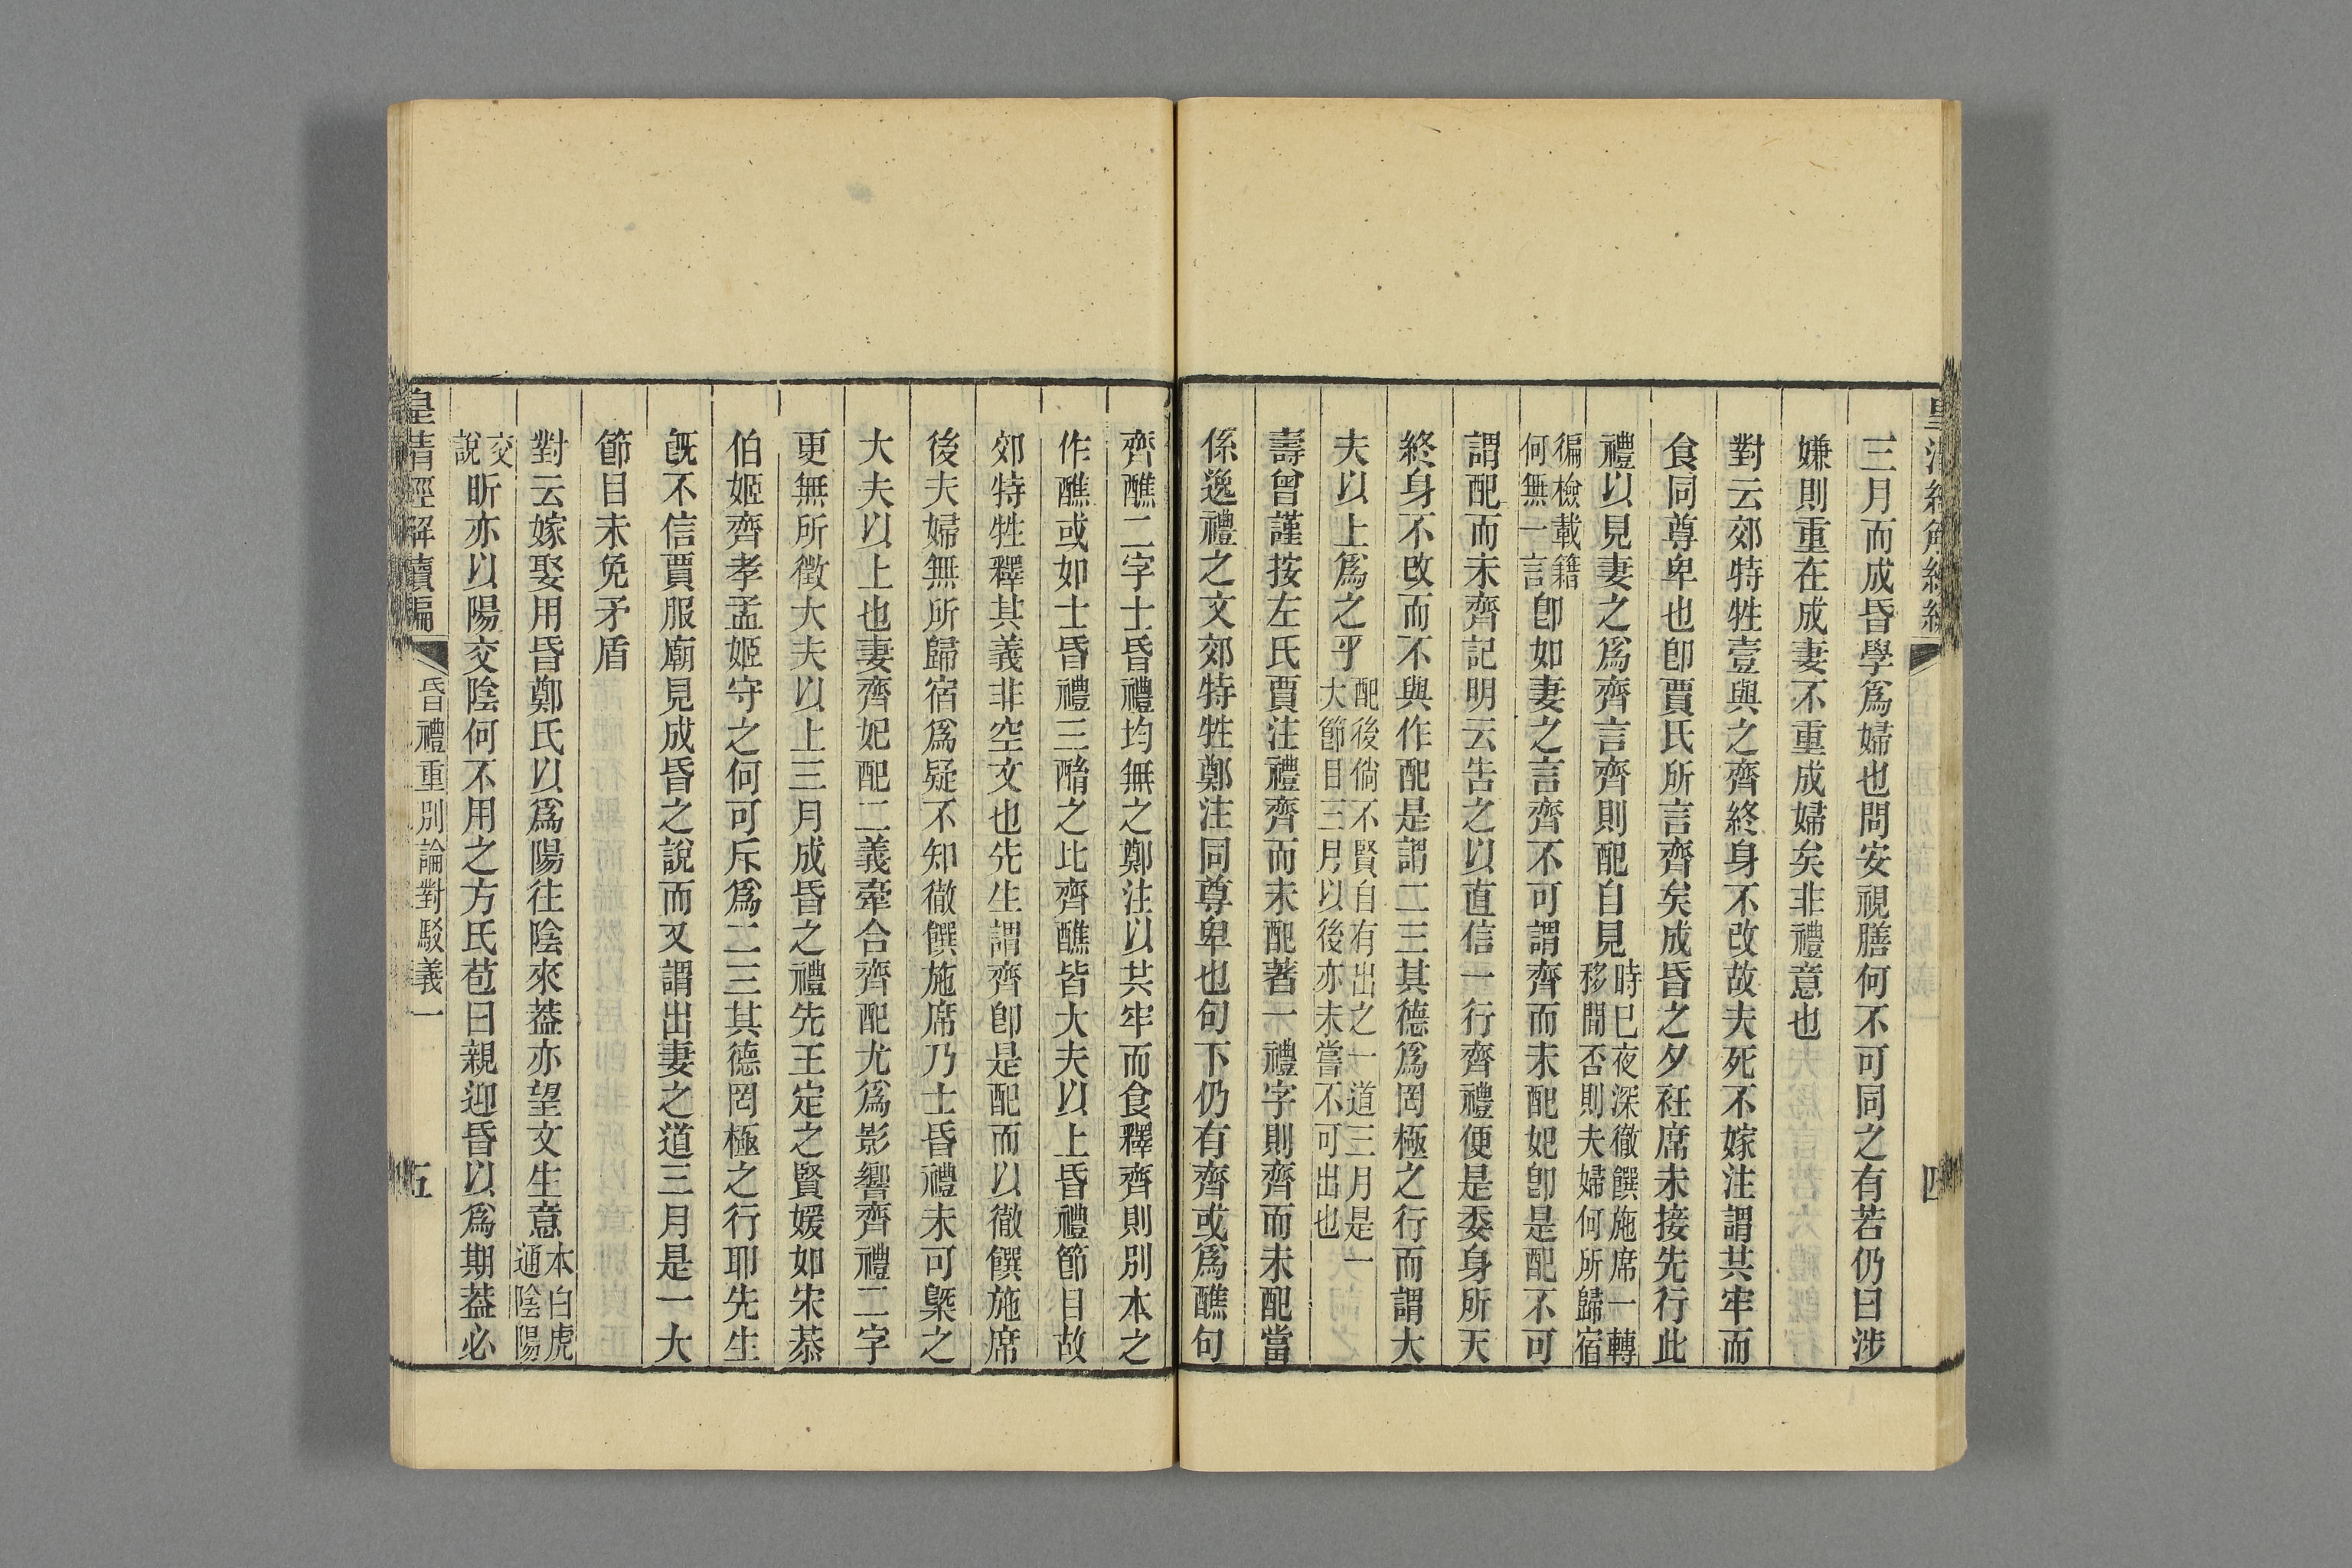 三月而成昏學爲婦也問安視膳何不可同之有若仍曰涉
嫌則重在成妻不重成婦矣非禮意也
對云郊特牲壹與之齊終身不改故夫死不嫁注謂共牢而
食同尊卑也卽賈氏所言齊矣成昏之夕衽席未接先行此
禮以見妻之爲齊言齊則配自見時已夜深徹饌施席一轉
移閒否則夫婦何所歸宿
徧檢載籍
何無一言卽如妻之言齊不可謂齊而未配妃卽是配不可
謂配而未齊記明云告之以直信一行齊禮便是委身所天
終身不改而不與作配是謂二三其德爲罔極之行而謂大
夫以上爲之乎配後倘不賢自有出之一道三月是一
大節目三月以後亦未嘗不可出也
壽曾謹按左氏賈注禮齊而未配著一禮字則齊而未配當
係逸禮之文郊特牲鄭注同尊卑也句下仍有齊或爲醮句
齊醮二字士昏禮均無之鄭注以共牢而食釋齊則別本之
作醮或如士昏禮三酳之比齊醮皆大夫以上昏禮節目故
郊特牲釋其義非空文也先生謂齊卽是配而以徹饌施席
後夫婦無所歸宿爲疑不知徹饌施席乃士昏禮未可槩之
大夫以上也妻齊妃配二義牽合齊配尤爲影響齊禮二字
更無所徵大夫以上三月成昏之禮先王定之賢媛如宋恭
伯姬齊孝孟姬守之何可斥爲二三其德罔極之行耶先生
旣不信賈服廟見成昏之說而又謂出妻之道三月是一大
節目未免矛盾
對云嫁娶用昏鄭氏以爲陽往陰來葢亦望文生意本白虎
通陰陽
交
說昕亦以陽交陰何不用之方氏苞曰親迎昏以爲期葢必
皇清經解續編
昏禮重別論對駁義一
五